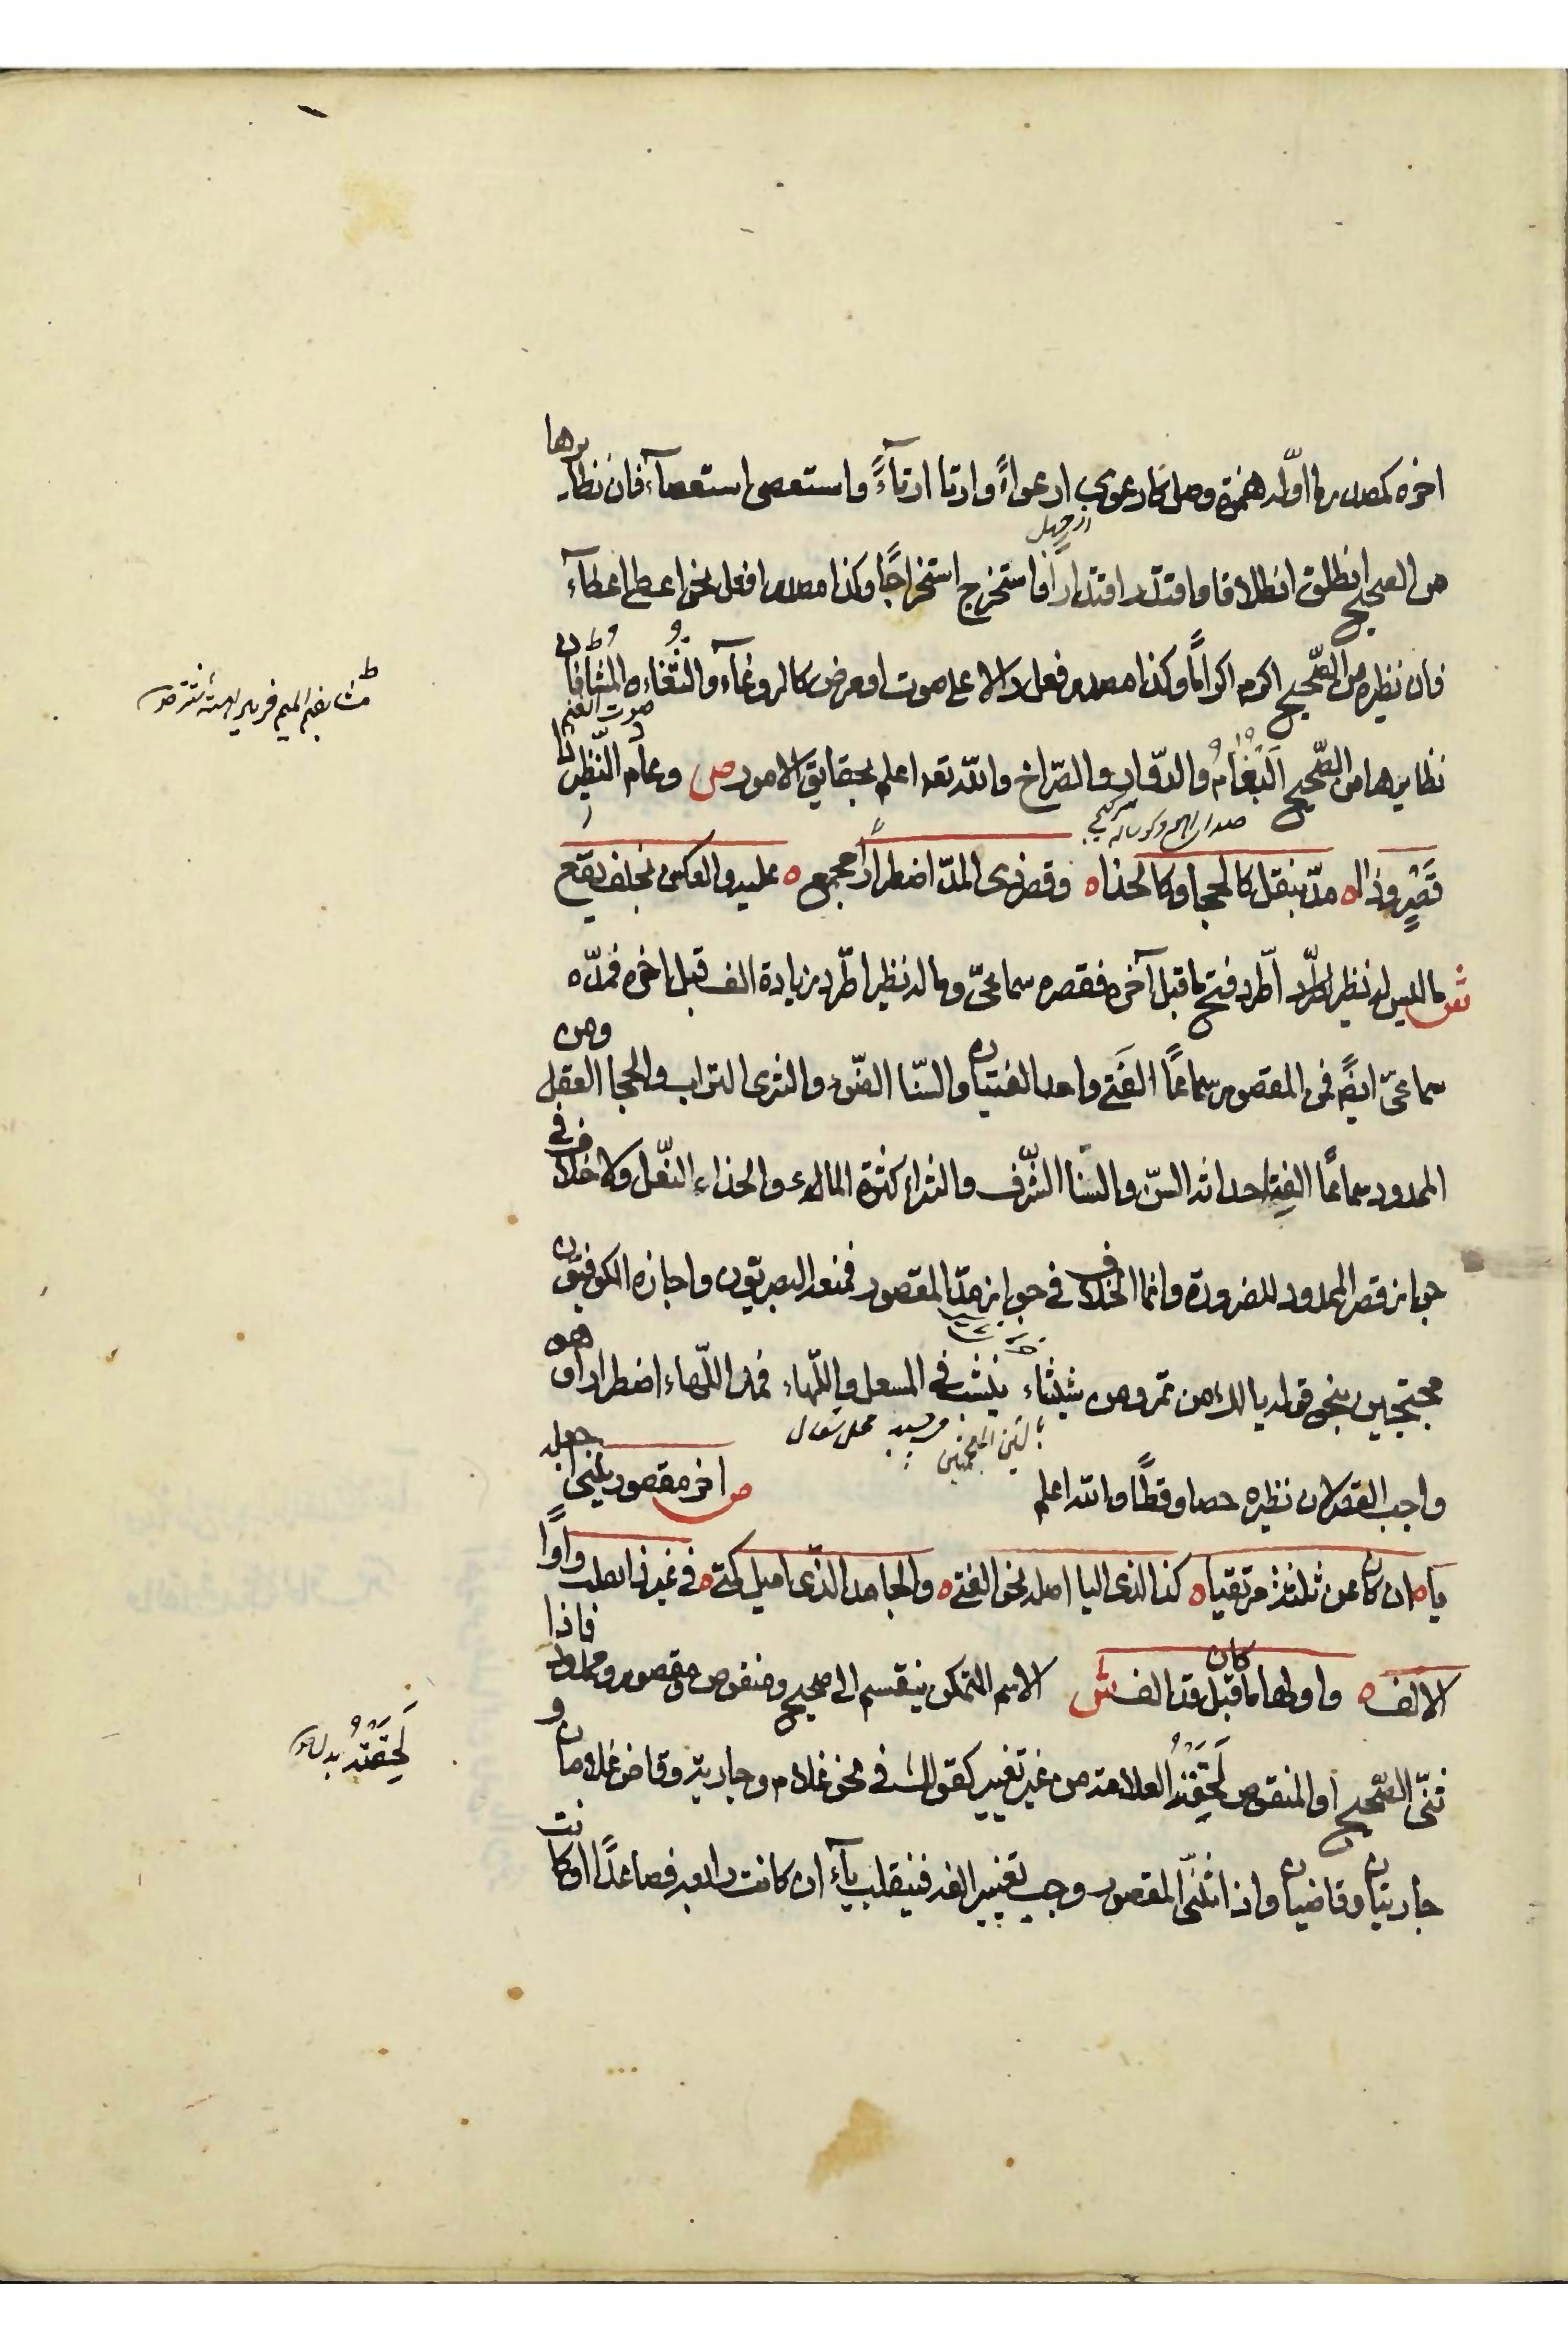 اخره كمصدر ما اوّله همزة وصل كارعوى ارعواءً وارتا ارتآءً واستعصى استعصآء فان نظايرها
من الصحيح انطلق انطلاقا واقتدر اقتدارًا واستخرج استخراجًا وكذا مصدر افعل نحو اعطى اعطآء
فان نظيره من الصّحيح اكرم اكرامًا وكذا مصدر فعل دالا على صوت او مرض كالروغآء والثّغاء والمشآء فان
صوت الغنم
نظايرها من الصّحيح البُغَامُ والدّوار والصّراخ والله تعه اعلم بحقايق الامور ص وعادم النّظير ذا
قَصْرٍ وذا ه مدّ بنقل كالحجا وكالحذا ه وقصر ذى المدّ اضطرارًا مجمع ه عليه والعكس بخلف يقع
ش ما ليس له نظير اطّرد فتح ما قبل آخره فقصره سماعىّ وما له نظير اطّرد زيادة الف قبل اخره فمدّه
سماعىّ ايضً فمن المقصور سماعًا الفَتى واحد الفتيان والسّنا الضّوء والثرى التراب والحجا العقل ومن
الممدود سماعًا الفتاء حداثة السّن والسّنا الشّرف والثراء كثرة المال والحذاء النّعل ولا خلاف فى
جواز قصر الممدود للضرورة وانما الخلاف فى جواز مدّ المقصور فمنعه البصريّون واجازه الكوفيّون
محتجين بنحو قوله يالك من تمر ومن شيشاء ينشب فى المسعل واللّهاء فمد اللّهاء اضطرارا وهو
واجب القصر لان نظيره حصا وقطًا والله اعلم ص اخر مقصور يثنى اجعله
يا ه ان كان عن ثلثة مرتقيا ه كذا الذى اليا اصله نحو الفتى ه والجامد الّذى اميل كمتى ه فى غير ذا تقلب واوًا
الالف ه واولها ما كان قبل قد الف ش الاسم المتمكن ينقسم الى صحيح ومنقوص ومقصور وممدود فاذا
ثنّى الصّحيح او المنقوص لَحِقَتْهُ العلامة من غير تغيير كقولك فى نحو غلام وجارية وقاض غلامان و
جاريتان وقاضيان واذا ثنّى المقصور وجب تغيير الفه فيقلب يآء ان كانت رابعة فصاعدًا او كانت
لَحِقَتْهُ